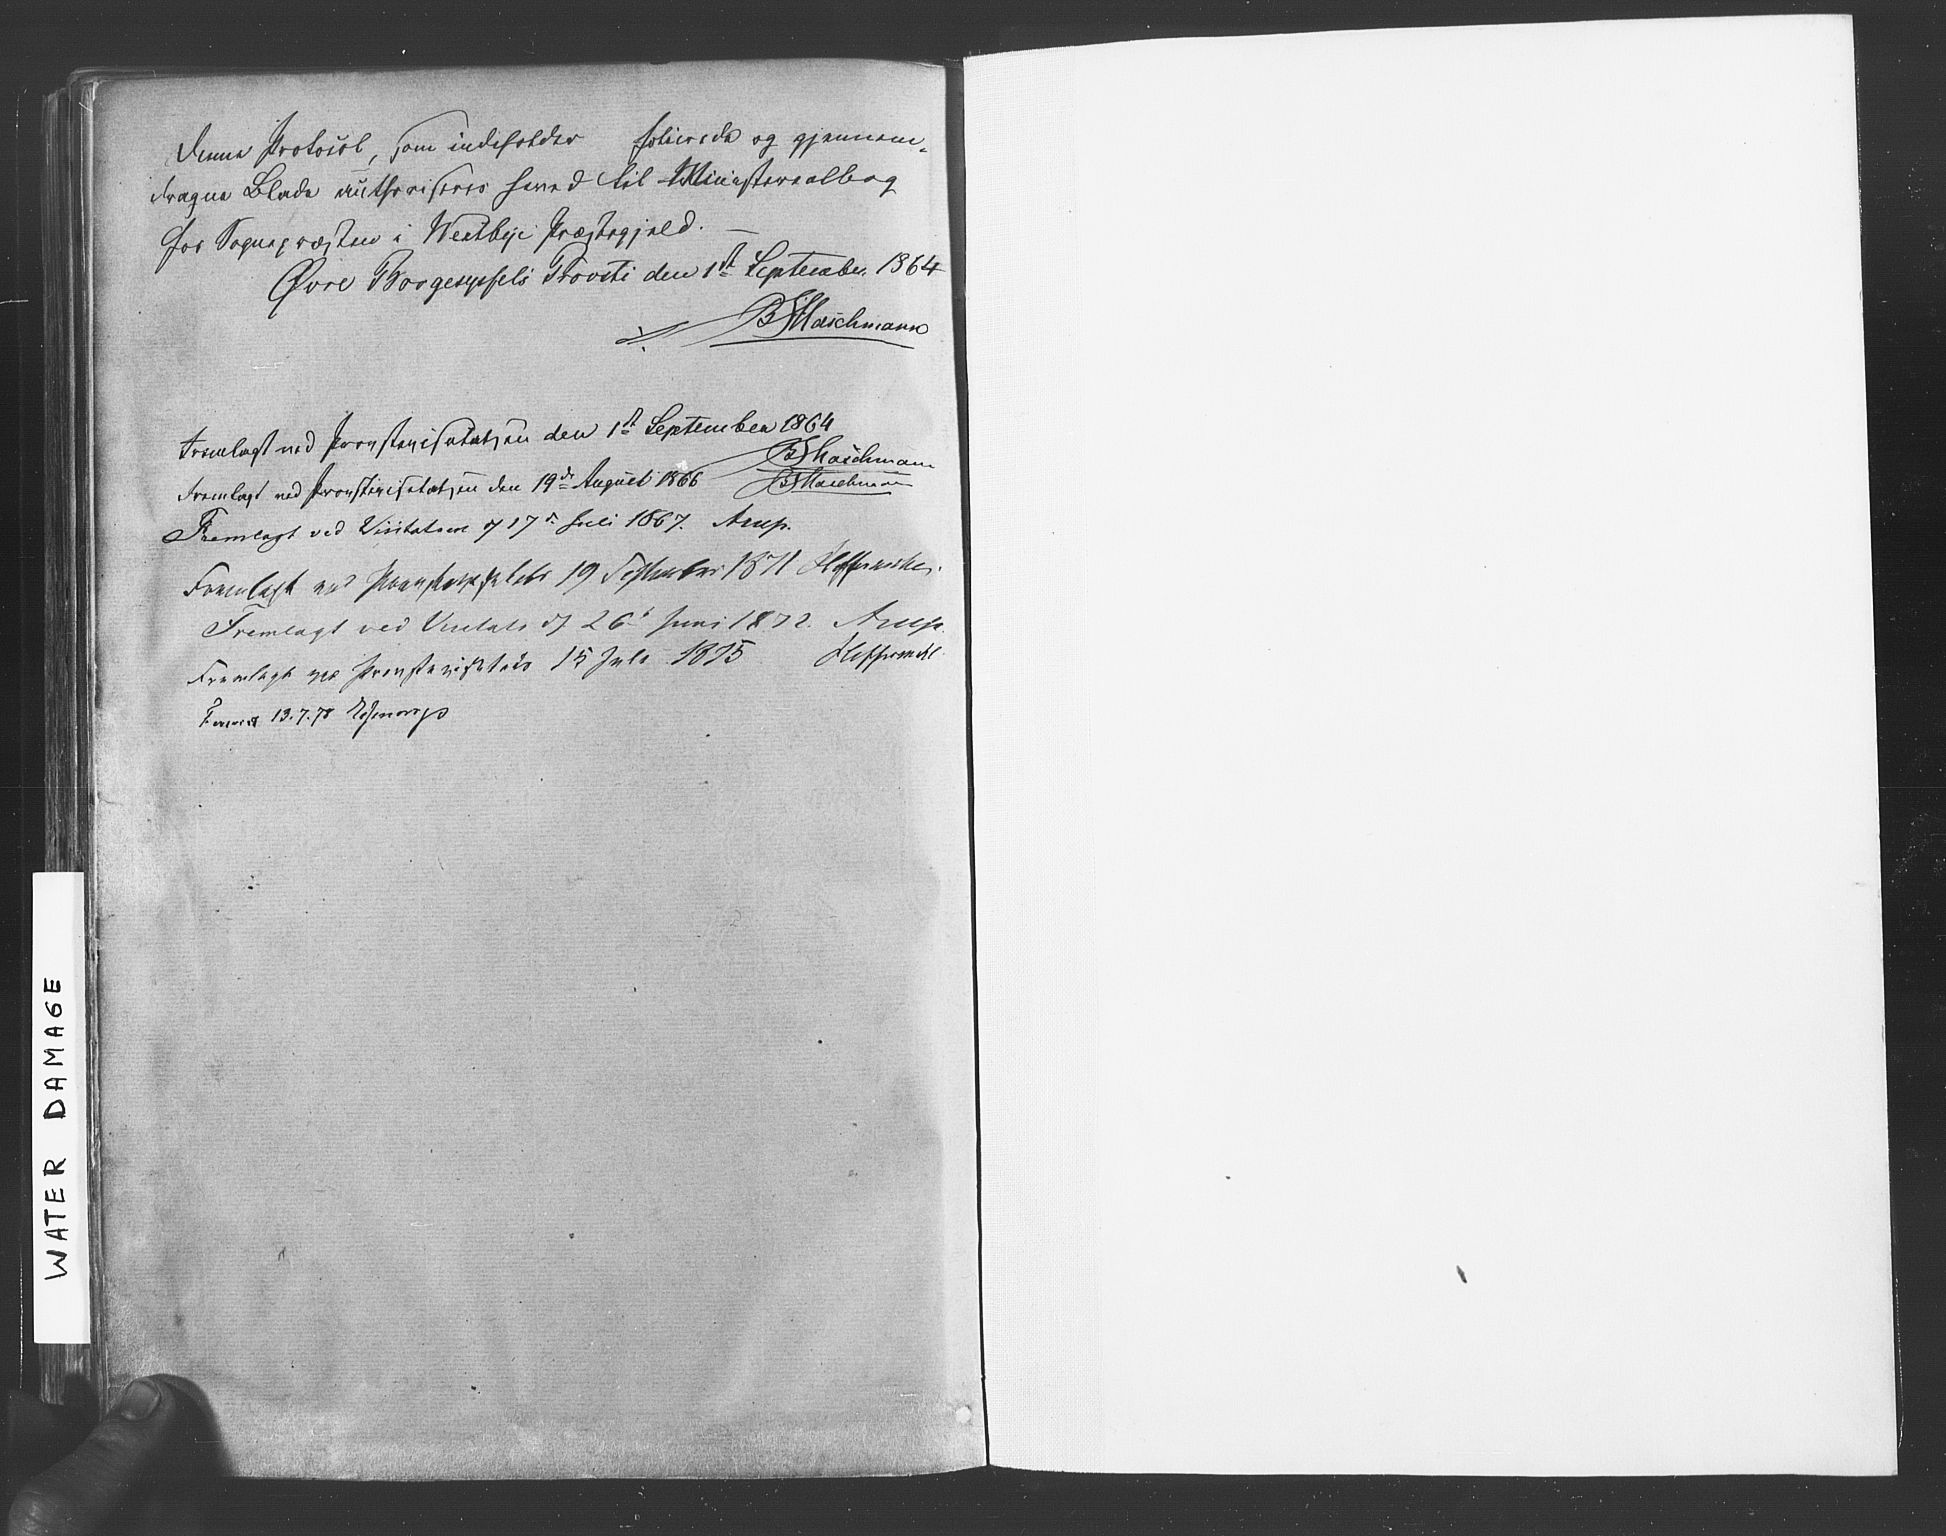 Denne Protocol, som indeholder folierede og gjennem-
dragne Blade authoriseres herved til Ministerialbog
for Sognepræsten i Westbye Præstegjeld. —
Øvre Borgesyssels Provsti den 1ste September 1864
B Maschmann
Fremlagt ved Provstevisitatsen den 1ste September 1864
B Maschmann
Fremlagt ved Provstevisitatsen den 19de August 1866 B Maschmann
Fremlagt ved Visitatsen d 17de Juli 1867. Arup.
Fremlagt ved 19 September 1871
Fremlagt ved Visitats d 26de Juni 1872. Arup.
Fremlagt ved Provstevisitats 15 Juli 1875
13.7.78
WATER DAMAGE